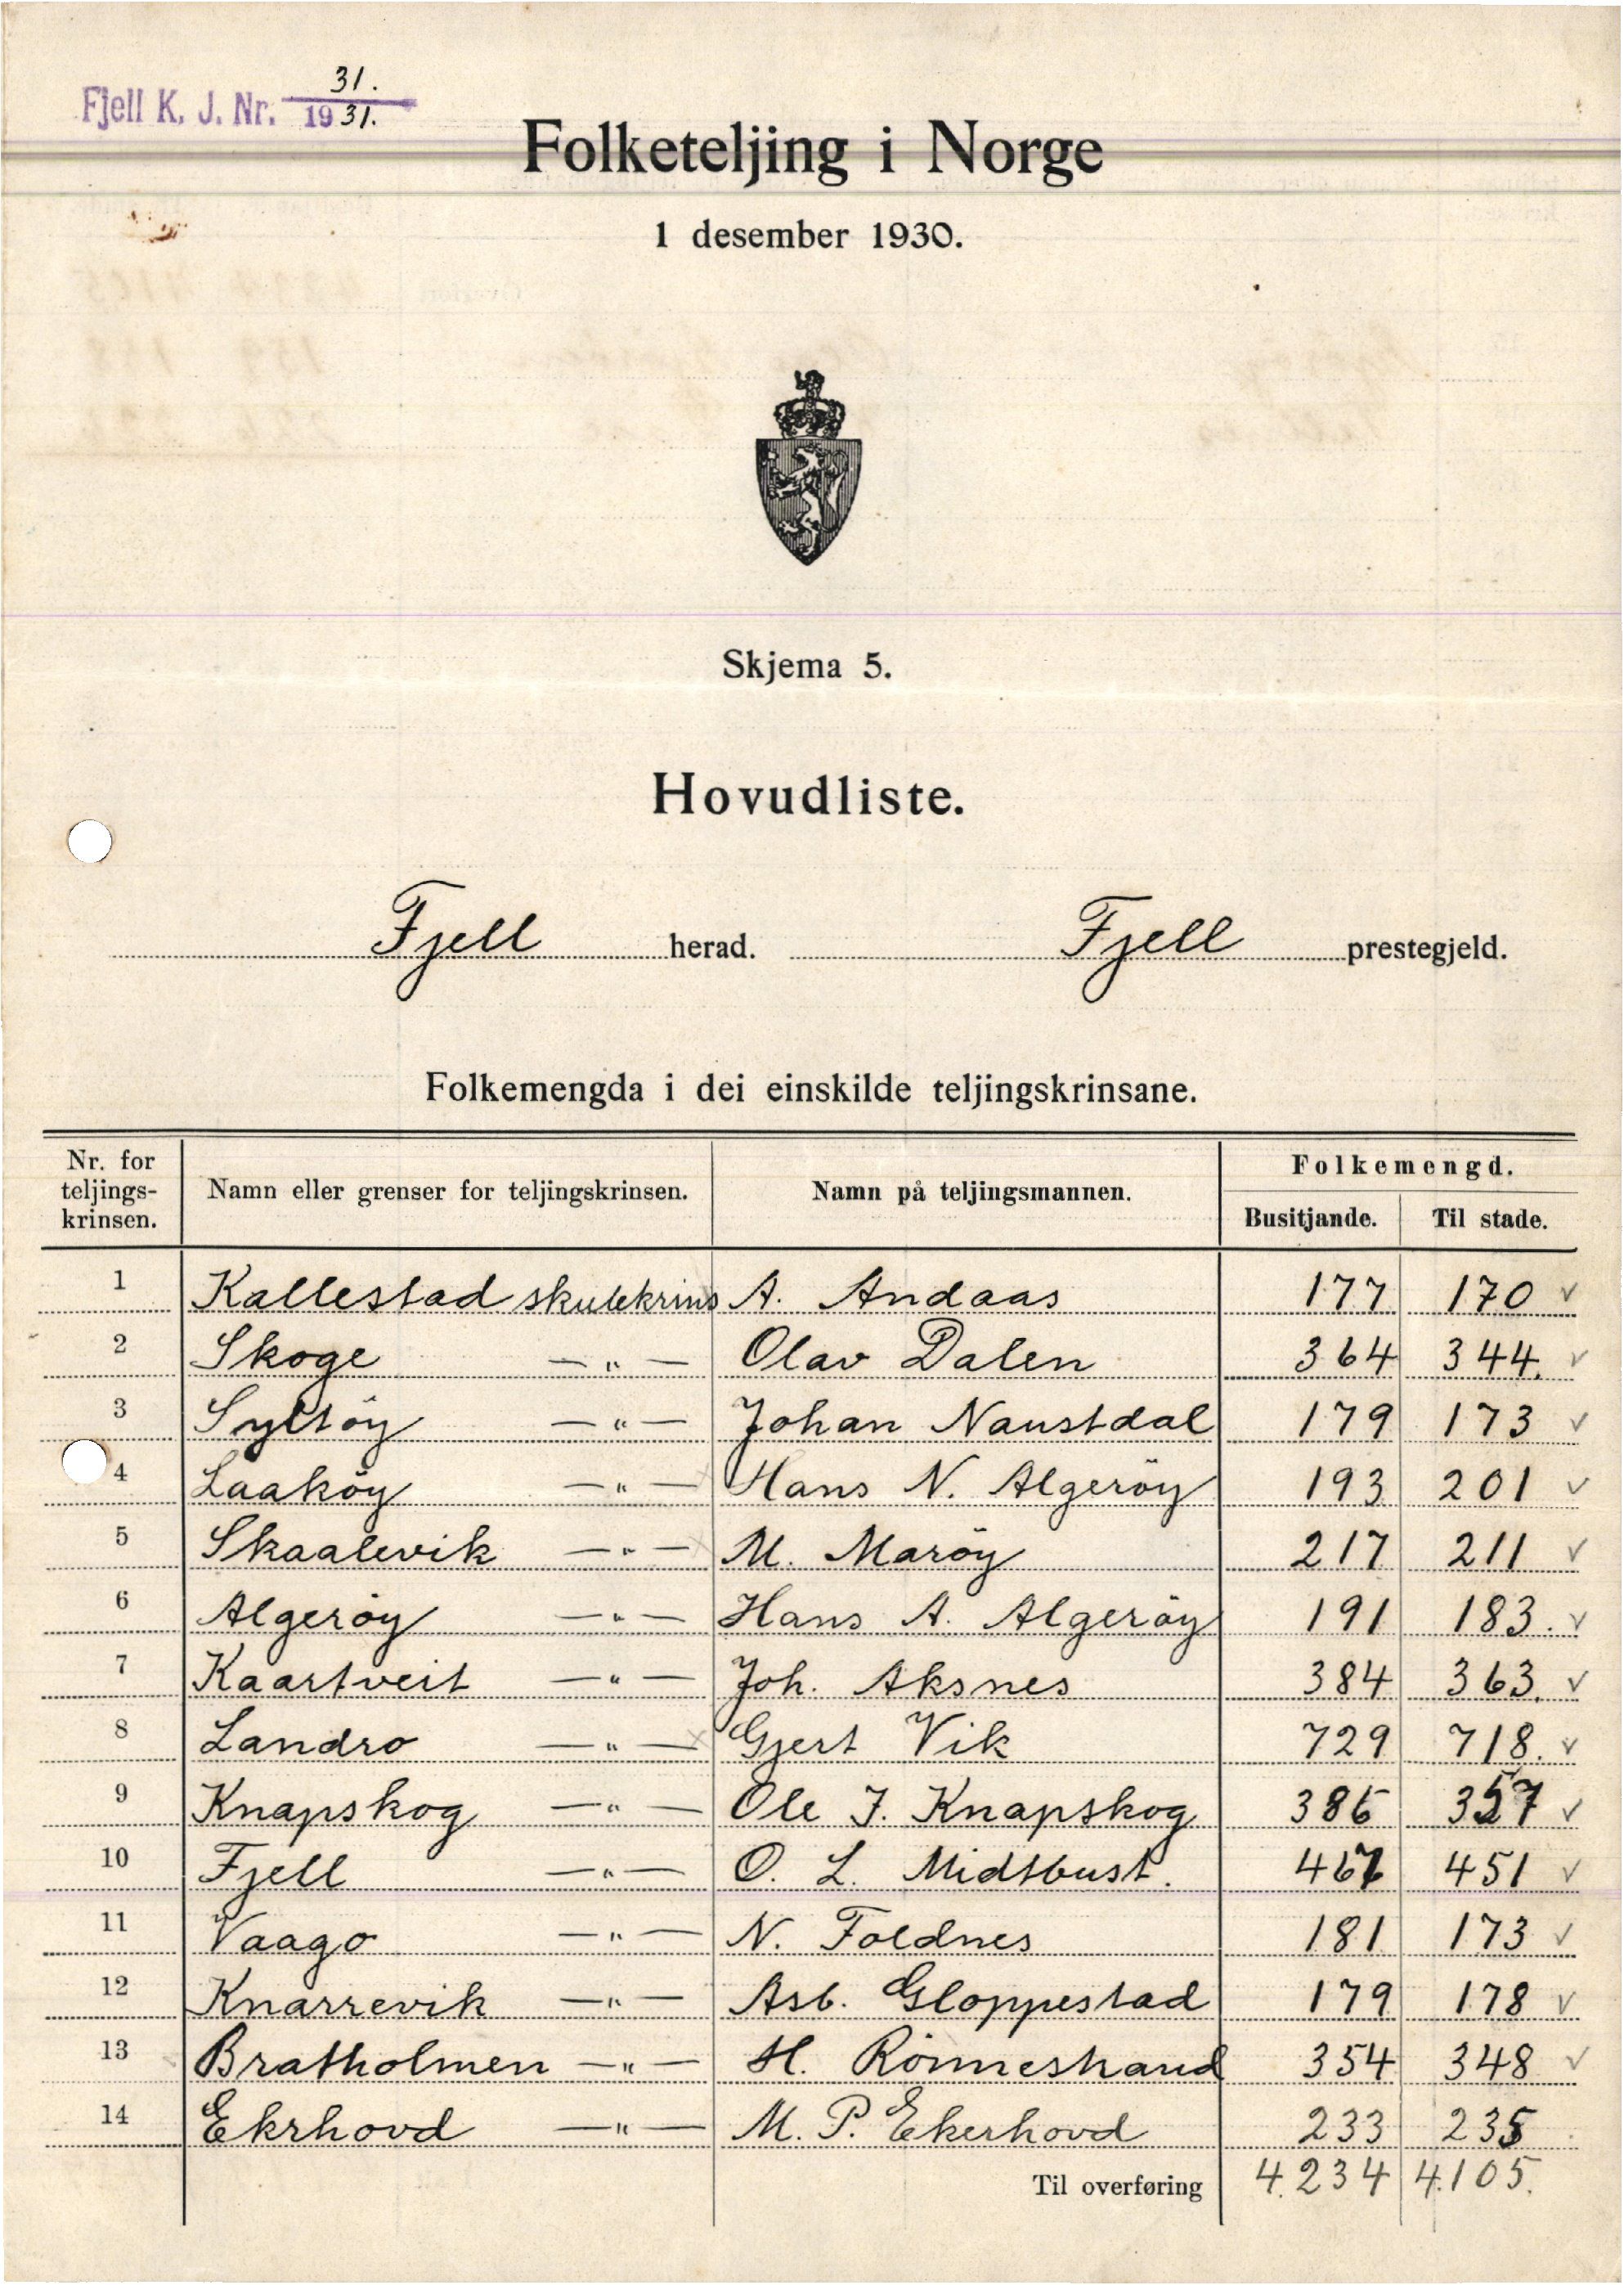 Fjell K. J. Nr. 31.
1931.
Folketeljing i Norge
1 desember 1930.
Skjema 5.
Hovudliste.
Fjell herad. Fjell prestegjeld.
Folkemengda i dei einskilde teljingskrinsane.
Nr. for teljings-krinsen. Namn eller grenser for teljingskrinsen. Namn på teljingsmannen. Folkemengd.
Busitjande. Til stade.
1 Kallestad skulekrins A. Andaas 177 170 ✓
2 Skoge —"— Olav Dalen 364 344. ✓
3 Syltöy —"— Johan Naustdal 179 173 ✓
4 Laaköy —"— Hans N. Algeröy 193 201 ✓
5 Skaalevik —"— M. Maröy 217 211 ✓
6 Algeröy —"— Hans A. Algeröy 191 183. ✓
7 Kaartveit —"— Joh. Aksnes 384 363. ✓
8 Landro —"— Gjert Vik 729 718. ✓
9 Knapskog —"— Ole J. Knapskog 386 357 ✓
10 Fjell —"— O. L. Midtbust. 467 451 ✓
11 Vaago —"— N. Foldnes 181 173 ✓
12 Knarrevik —"— Asb. Gloppestad 179 178 ✓
13 Bratholmen —"— H. Rönneshand 354 348 ✓
14 Ekrhovd —"— M. P. Ekerhovd 233 235
Til overføring 4.234 4.105.